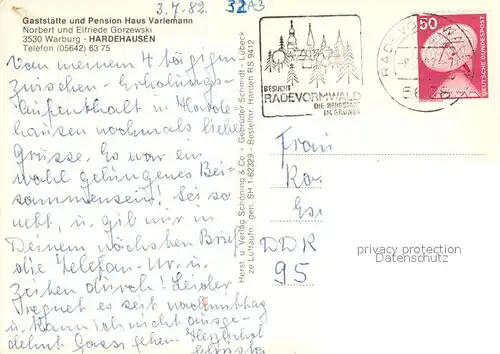 3.7.82. 32A3
Gaststätte und Pension Haus Varlemann
Norbert und Elfriede Gorzewski
3530 Warburg - HARDEHAUSEN
Telefon (05642) 63 75
Von meinem 4 tägigen
Zwischen-Erholungs-
Aufenthalt in Harde-
hausen nochmals liebe
Grüsse. Es war ein
wohl gelungenes Bei-
sammensein! Sei so
nett, u. gib mir in
Deinem nächsten Brief
die Telefon-Nr. u.
Zeiten durch! Leider
regnet es seit nachmittag
u. kann ich nicht ausge-
dehnt Gassi gehen. Herzlichst
Herst. u. Verlag Schöning & Co. - Gebrüder Schmidt - Lübeck
ze Luftaufn. gen. SH 1-62329 - Bestellnr. Harden RS 9412
BESUCHT
RADEVORMWALD
DIE BERGSTADT
IM GRÜNEN
RADEVORMWALD
50
DEUTSCHE BUNDESPOST
Frau
Ka
Es
DDR
95
privacy protection
Datenschutz